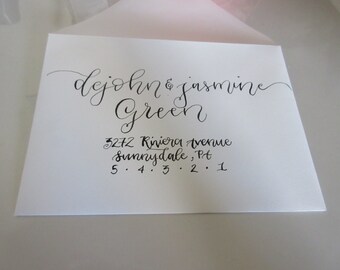 dejohn & jasmine
Green
3272 Riviera Avenue
sunnydale, PA
5 · 4 · 3 · 2 · 1